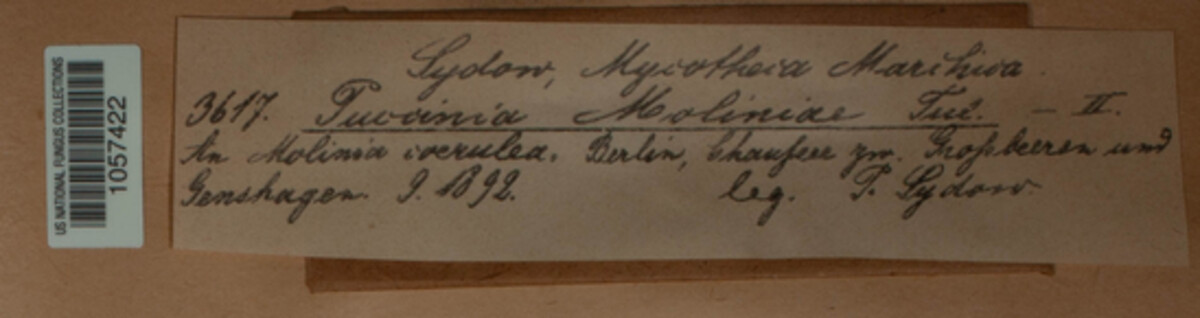 US NATIONAL FUNGUS COLLECTIONS
1057422
Sydow, Mycotheca Marchica.
3617. Puccinia Moliniae Tul. – II.
An Molinia coerulea. Berlin, Chaussee zw. Großbeeren und
Genshagen. 9. 1892. leg. P. Sydow.